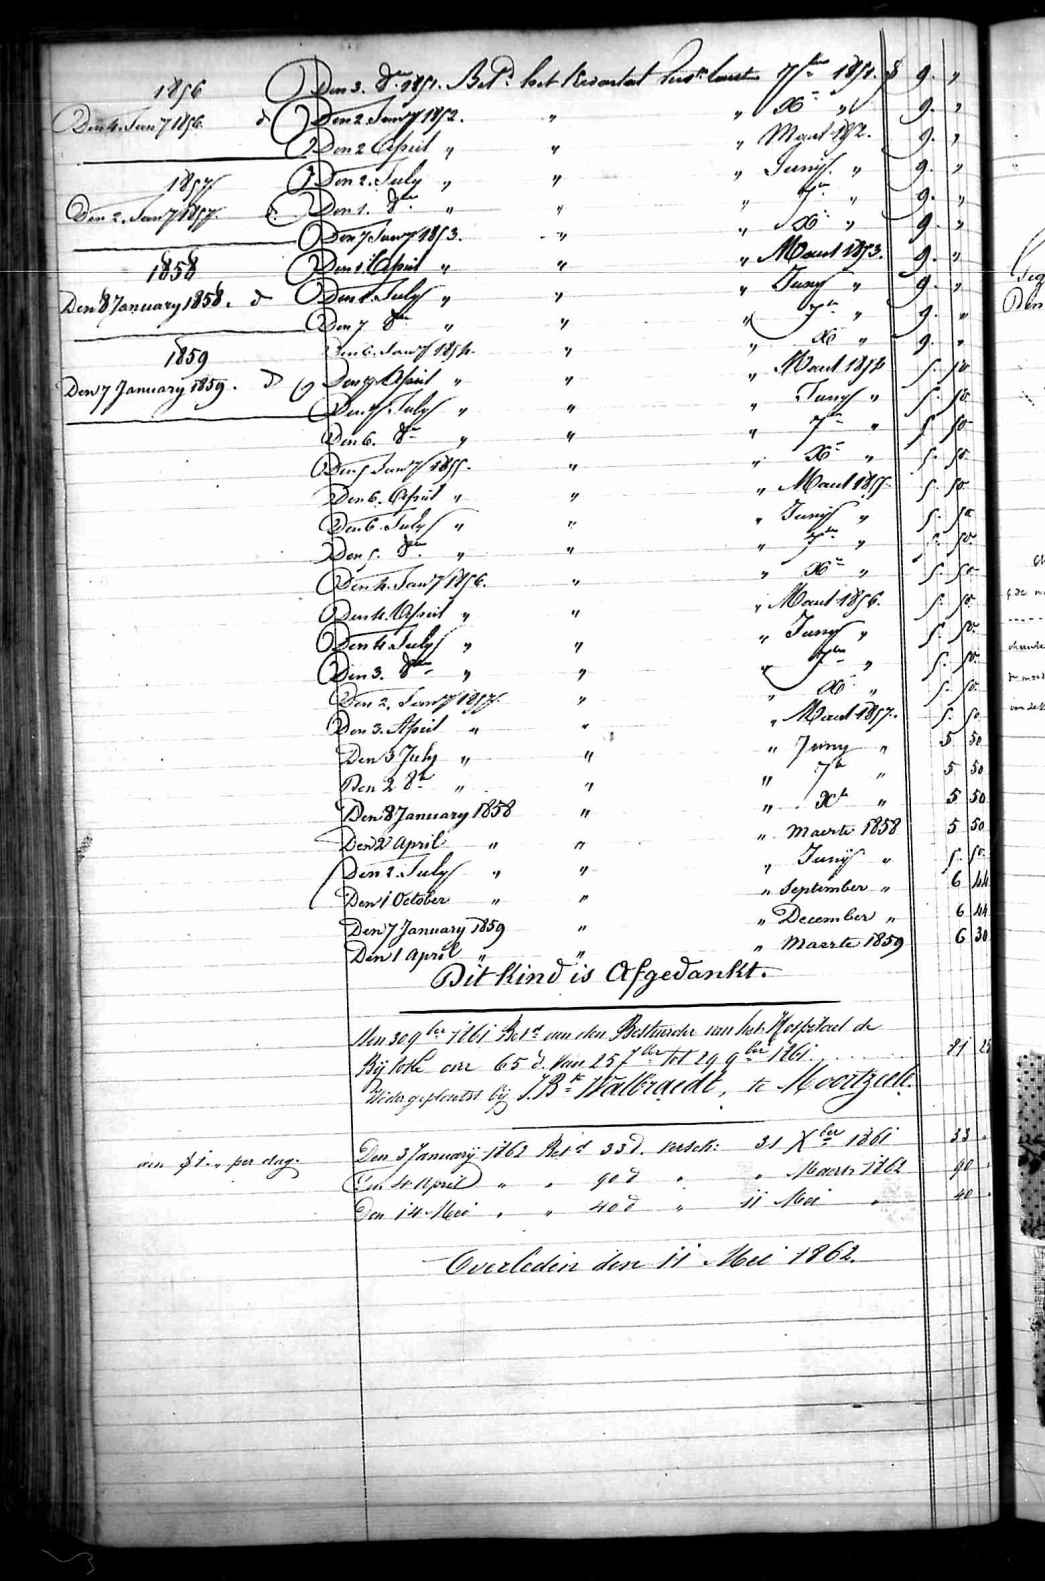 1856
Den 4. Janry 1856. d
1857
Den 2. Janry 1857. d.
1858
Den 8 January 1858. d
1859
Den 7 January 1859. d
Den 3. 8er 1851. Betd het Kwartal 7ber 1851. f 9. "
Den 2 Janry 1852. " " Xer " 9. "
Den 2 April " " " Maart 1852. 9. "
Den 2. July " " " Junij " 9. "
Den 1. 8er " " " 7er " 9. "
Den 7 Janry 1853. " " Xer " 9. "
Den 1 April " " " Maart 1853. 9. "
Den 1. July " " " Juny " 9. "
Den 7 8er " " " 7er " 9. "
Den 6. Janry 1854. " " Xer " 9. "
Den 7 April " " " Maart 1854 5. 50
Den 7 July " " " Juny " 5. 50
Den 6. 8er " " " 7er " 5 50
Den 5 Janry 1855. " " Xer " 5. 50
Den 6. April " " " Maart 1855. 5. 50
Den 6. July " " " Junij " 5. 50
Den 5. 8er " " " 7er " 5. 50
Den 4. Janry 1856. " " Xer " 5. 50
Den 4. April " " " Maart 1856. 5. 50
Den 4 July " " " Juny " 5. 50
Den 3. 8er " " " 7er " 5. 50
Den 2. Janry 1857. " " Xer " 5. 50
Den 3. April " " " Maart 1857. 5. 50
Den 3 July " " " Juny " 5 50
Den 2 8er " " " 7er " 5 50
Den 8 January 1858 " " Xer " 5 50
Den 2 April " " " Maerte 1858 5 50
Den 2. July " " " Junij " 5. 50
Den 1 October " " " September " 6 44
Den 7 January 1859 " " December " 6 44
Den 1 April " " " Maerte 1859 6 30
Dit Kind is Afgedankt.
Den 30 9ber 1861 Betd aan den Bestuurder van het Hospitael de
Bijloke over 65 d. van 25 7ber tot 29 9ber 1861 81 25
Wedergeplaetst bij J. Bte Walbraedt, te Moortzeele.
aen f 1 " per dag.
Den 3 January 1862 Betd 33 d. versch: 31 Xber 1861 33 "
Den 4 April " " 90 d " " Maerte 1862 90 "
Den 14 Mei " " 40 d " 11 Mei " 40 "
Overleden den 11 Mei 1862.